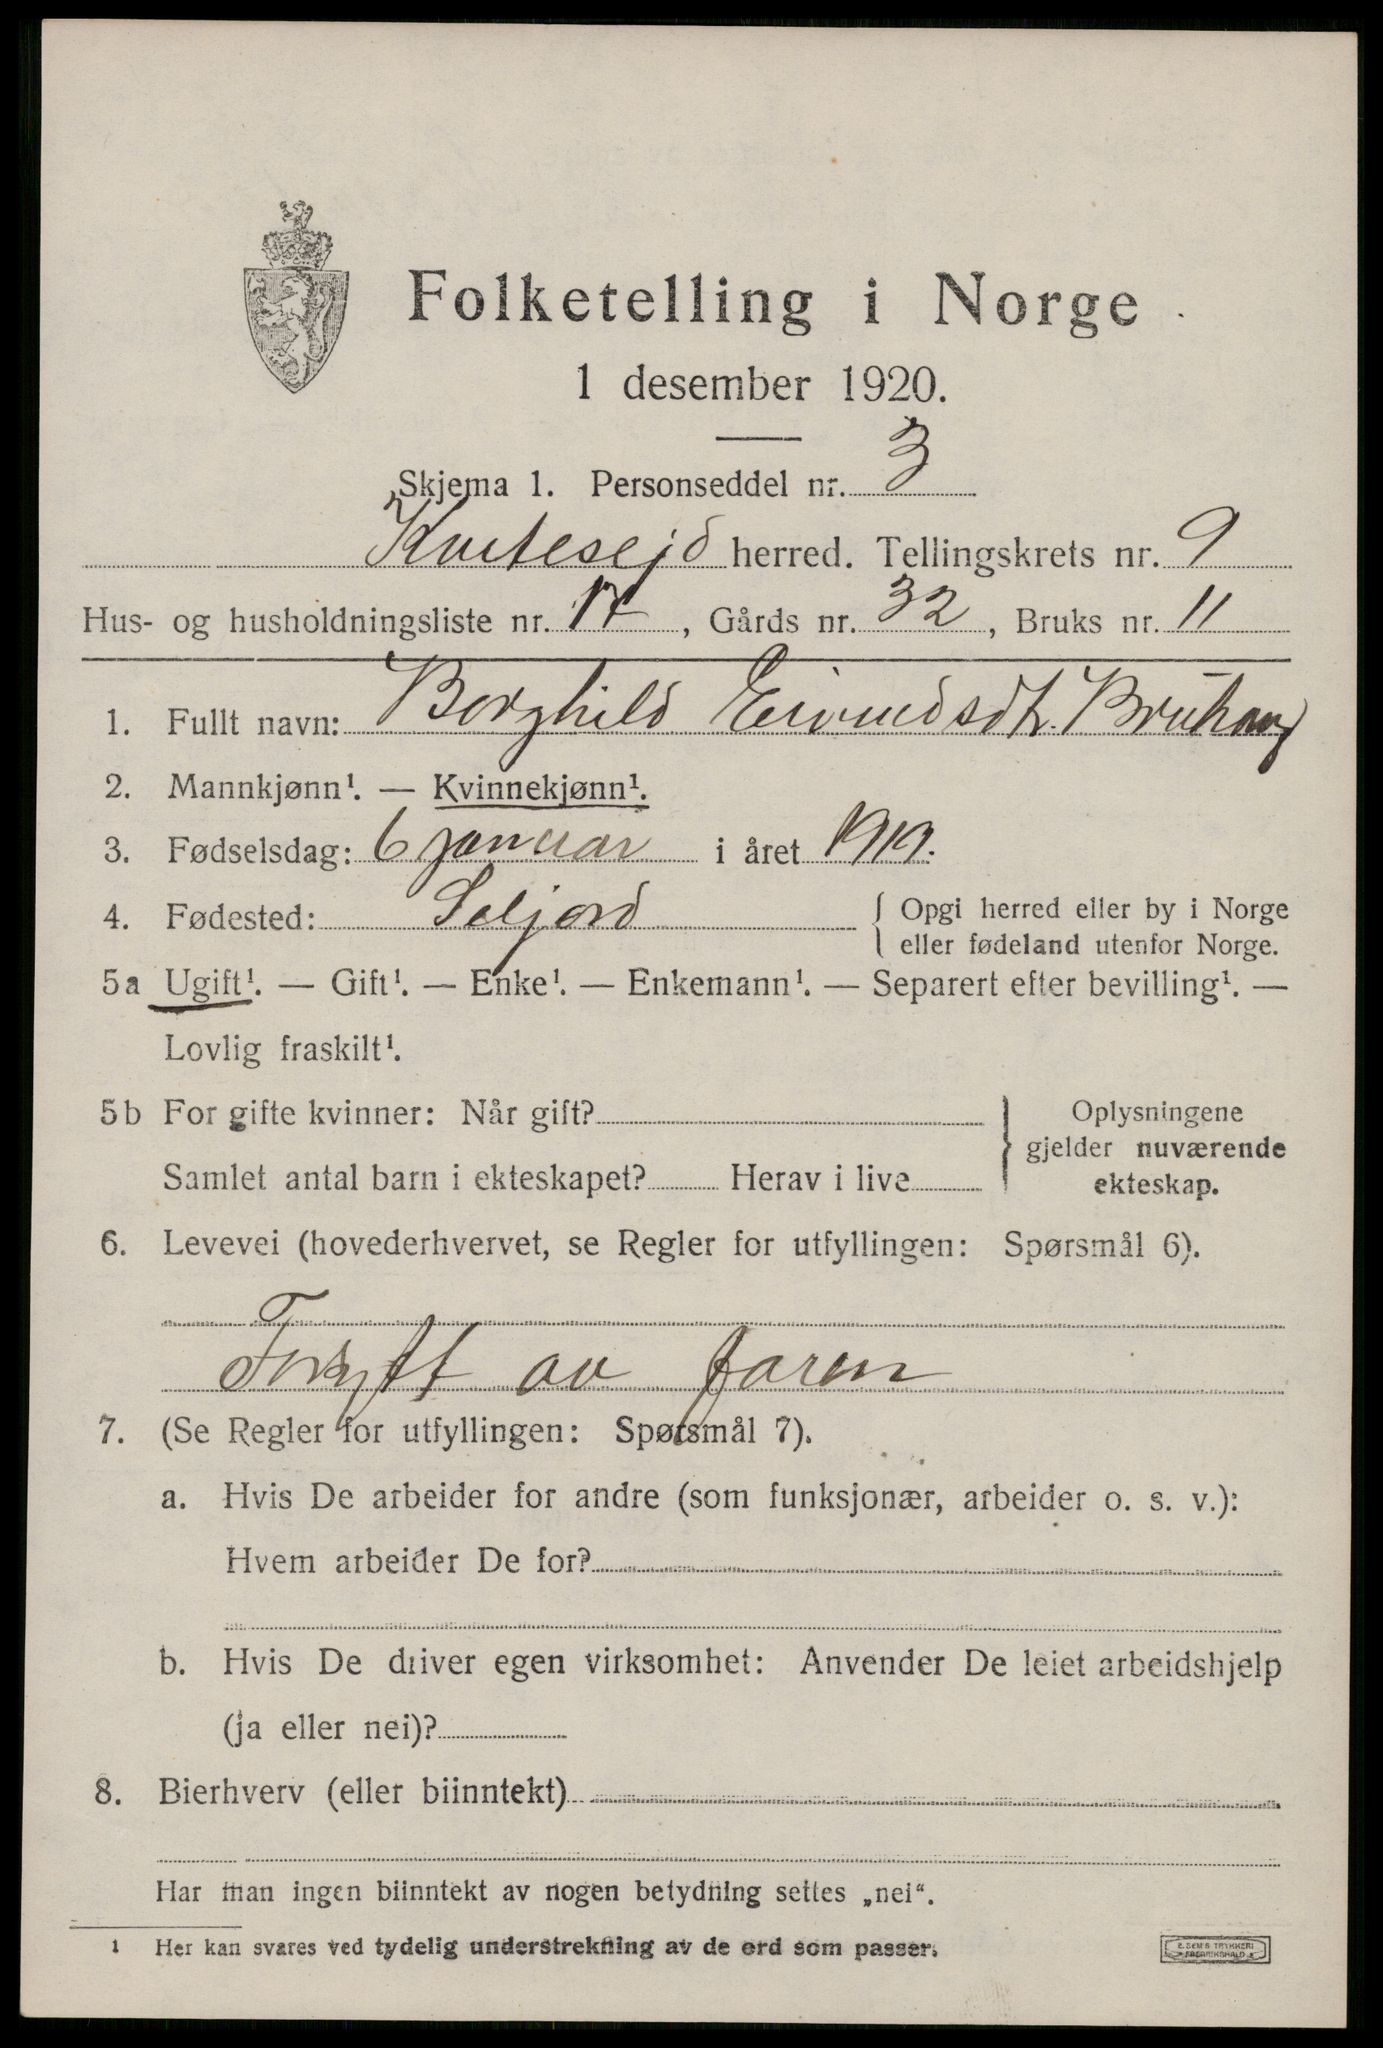 Folketelling i Norge
1 desember 1920.
Skjema 1. Personseddel nr. 3
Kvitesejd herred. Tellingskrets nr. 9
Hus- og husholdningsliste nr. 17, Gårds nr. 32, Bruks nr. 11
1. Fullt navn: Borghild Eivindsdt. Brühaug
2. Mannkjønn¹. — Kvinnekjønn¹.
3. Fødselsdag: 6 januar i året 1919.
4. Fødested: Seljord { Opgi herred eller by i Norge
eller fødeland utenfor Norge.
5a Ugift¹. — Gift¹. — Enke¹. — Enkemann¹. — Separert efter bevilling¹. —
Lovlig fraskilt¹.
5b For gifte kvinner: Når gift? } Oplysningene
gjelder nuværende
Samlet antal barn i ekteskapet? Herav i live
ekteskap.
6. Levevei (hovederhvervet, se Regler for utfyllingen: Spørsmål 6).
Forsytt av faren
7. (Se Regler for utfyllingen: Spørsmål 7).
a. Hvis De arbeider for andre (som funksjonær, arbeider o. s. v.):
Hvem arbeider De for?
b. Hvis De driver egen virksomhet: Anvender De leiet arbeidshjelp
(ja eller nei)?
8. Bierhverv (eller biinntekt)
Har man ingen biinntekt av nogen betydning settes „nei“.
1 Her kan svares ved tydelig understrekning av de ord som passer.
E. SEM'S TRYKKERI
FREDRIKSHALD